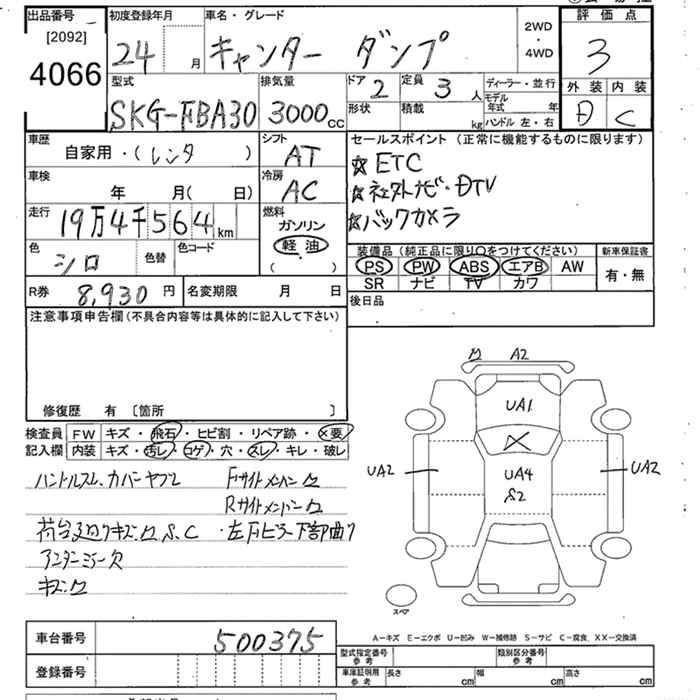 出品番号 初度登録年月 車名・グレード 2WD・4WD 評価点
[2092]
4066 24月 キャンター ダンプ 3
型式 排気量 ドア 2 定員 3人 ディーラー・並行 外装 内装
SKG-FBA30 3000cc 形状 積載 kg モデル年式 年 ハンドル 左・右 D C
車歴 シフト セールスポイント (正常に機能するものに限ります)
自家用・(レンタ ) AT ☆ETC
車検 冷房 ☆社外ナビ・DTV
年 月( 日) AC ☆バックカメラ
走行 燃料
19万4千564km ガソリン
色 シロ 色替 色コード 軽油
( )
装備品 (純正品に限り○をつけてください) 新車保証書
PS PW ABS エアB AW 有・無
SR ナビ TV カワ
R券 8,930円 名変期限 月 日 後日品
注意事項申告欄 (不具合内容等は具体的に記入して下さい)
修復歴 有 [箇所 ]
検査員 FW キズ・飛石・ヒビ割・リペア跡・×要
記入欄 内装 キズ・汚レ・コゲ・穴・スレ・キレ・破レ
ハンドルスム、カバーヤブレ
荷台廻りキズ凹、S、C・左Fピラー下部曲り
アンダーミラー欠
キズ凹
A2
UA1
UA2 UA4 UA2
S2
スペア
A-キズ E-エクボ U-凹み W-補修跡 S-サビ C-腐食、XX-交換済
車台番号 500375
登録番号
型式指定番号 参考 類別区分番号 参考
車庫証明用 参考 長さ cm 幅 cm 高さ cm